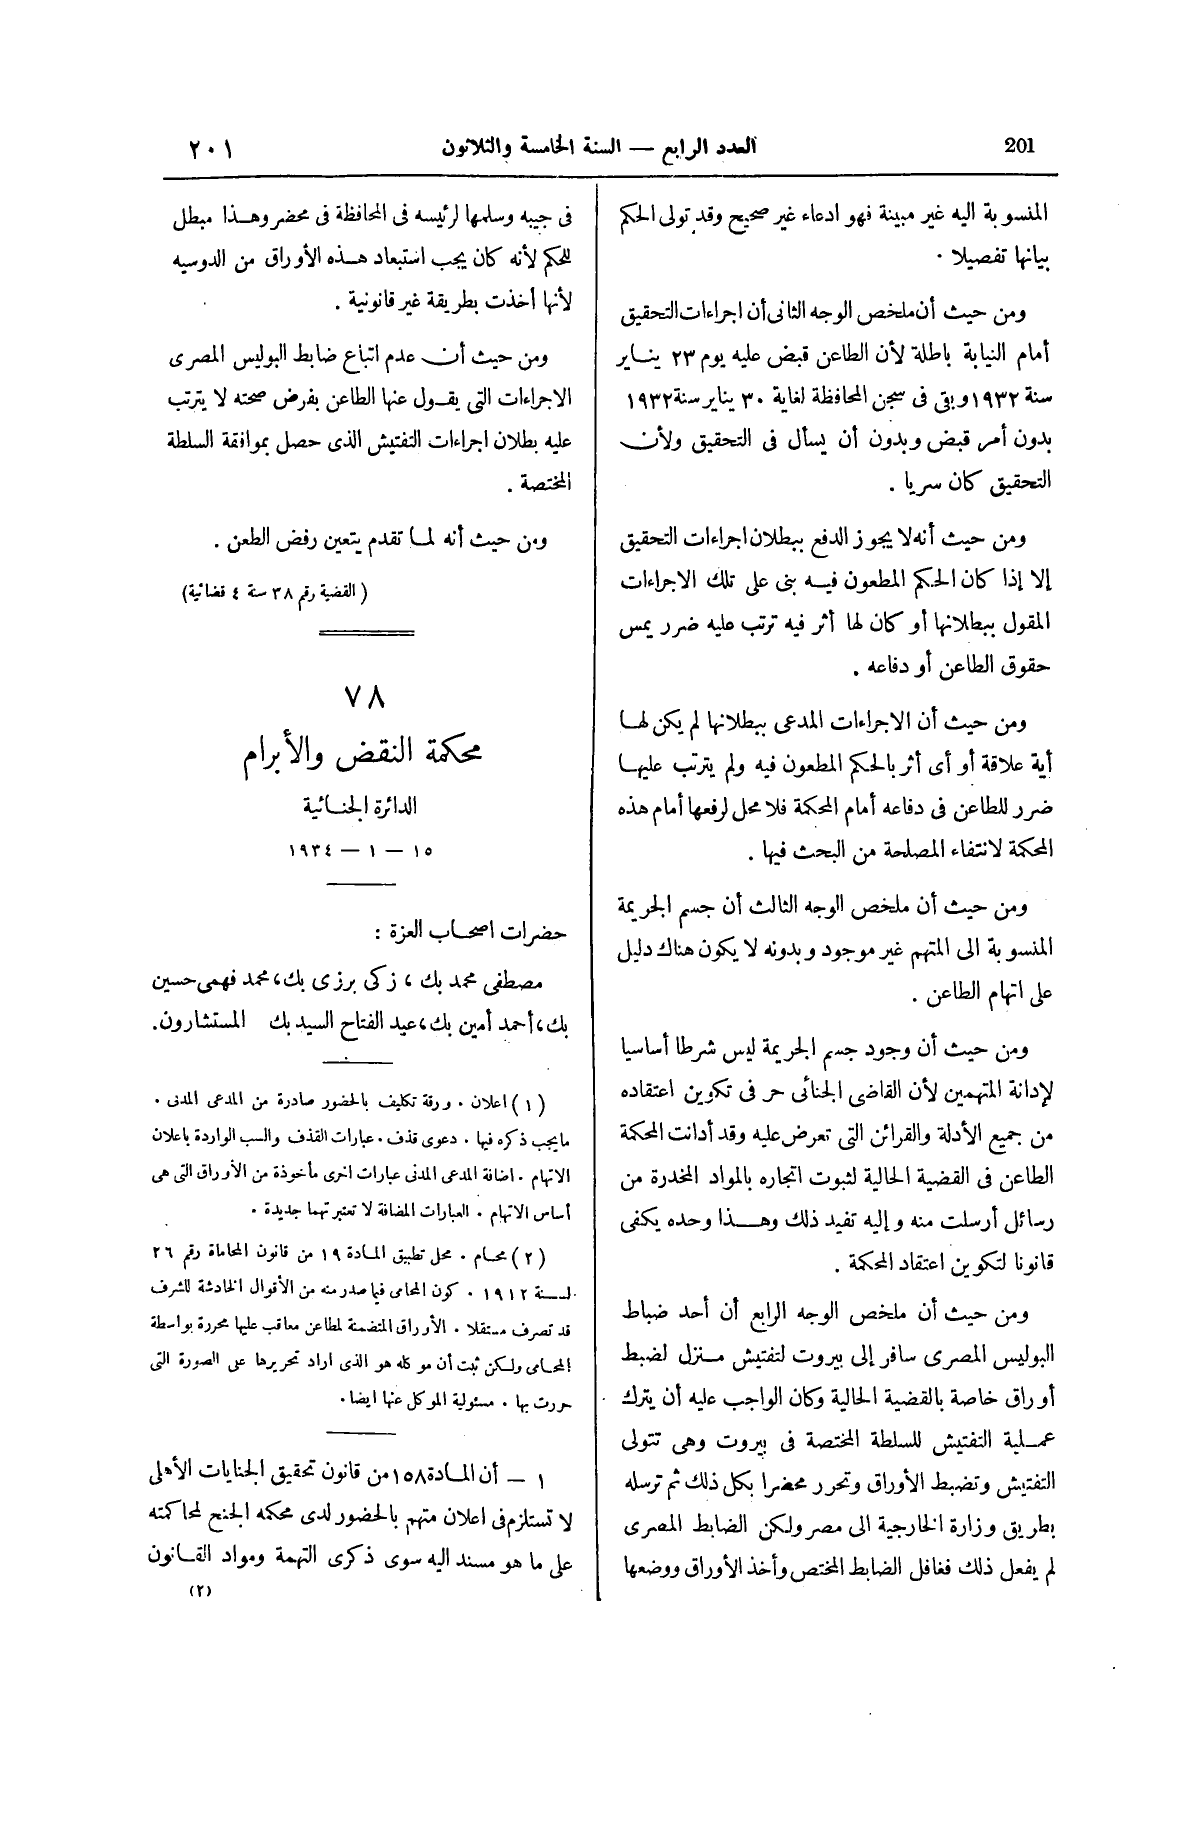 201
العدد الرابع — السنة الخامسة والثلاثون
٢٠١
المنسوبة اليه غير مبينة فهو ادعاء غير صحيح وقد تولى الحكم
بيانها تفصيلا .
ومن حيث أن ملخص الوجه الثانى أن اجراءات التحقيق
أمام النيابة باطلة لأن الطاعن قبض عليه يوم ٢٣ يناير
سنة ١٩٣٢ وبقى فى سجن المحافظة لغاية ٣٠ يناير سنة ١٩٣٢
بدون أمر قبض وبدون أن يسأل فى التحقيق ولأن
التحقيق كان سريا .
ومن حيث أنه لا يجوز الدفع ببطلان اجراءات التحقيق
إلا إذا كان الحكم المطعون فيه بنى على تلك الاجراءات
المقول ببطلانها أو كان لها أثر فيه ترتب عليه ضرر يمس
حقوق الطاعن أو دفاعه .
ومن حيث أن الاجراءات المدعى ببطلانها لم يكن لها
أية علاقة أو أى أثر بالحكم المطعون فيه ولم يترتب عليها
ضرر للطاعن فى دفاعه أمام المحكمة فلا محل لرفعها أمام هذه
المحكمة لانتفاء المصلحة من البحث فيها .
ومن حيث أن ملخص الوجه الثالث أن جسم الجريمة
المنسوبة الى المتهم غير موجود وبدونه لا يكون هناك دليل
على اتهام الطاعن .
ومن حيث أن وجود جسم الجريمة ليس شرطا أساسيا
لإدانة المتهمين لأن القاضى الجنائى حر فى تكوين اعتقاده
من جميع الأدلة والقرائن التى تعرض عليه وقد أدانت المحكمة
الطاعن فى القضية الحالية لثبوت اتجاره بالمواد المخدرة من
رسائل أرسلت منه وإليه تفيد ذلك وهذا وحده يكفى
قانونا لتكوين اعتقاد المحكمة .
ومن حيث أن ملخص الوجه الرابع أن أحد ضباط
البوليس المصرى سافر إلى بيروت لتفتيش منزل لضبط
أوراق خاصة بالقضية الحالية وكان الواجب عليه أن يترك
عملية التفتيش للسلطة المختصة فى بيروت وهى تتولى
التفتيش وتضبط الأوراق وتحرر محضرا بكل ذلك ثم ترسله
بطريق وزارة الخارجية الى مصر ولكن الضابط المصرى
لم يفعل ذلك فغافل الضابط المختص وأخذ الأوراق ووضعها
فى جيبه وسلمها لرئيسه فى المحافظة فى محضر وهذا مبطل
للحكم لأنه كان يجب استبعاد هذه الأوراق من الدوسيه
لأنها أخذت بطريقة غير قانونية .
ومن حيث أن عدم اتباع ضابط البوليس المصرى
الاجراءات التى يقول عنها الطاعن بفرض صحته لا يترتب
عليه بطلان اجراءات التفتيش الذى حصل بموافقة السلطة
المختصة .
ومن حيث أنه لما تقدم يتعين رفض الطعن .
( القضية رقم ٣٨ سنة ٤ قضائية )
٧٨
محكمة النقض والأبرام
الدائرة الجنائية
١٥ — ١ — ١٩٣٤
حضرات اصحاب العزة :
مصطفى محمد بك ، زكى برزى بك ، محمد فهمى حسين
بك ، أحمد أمين بك ، عبد الفتاح السيد بك المستشارون .
( ١ ) اعلان . ورقة تكليف بالحضور صادرة من المدعى المدنى .
مايجب ذكره فيها . دعوى قذف . عبارات القذف والسب الواردة باعلان
الاتهام . اضافة المدعى المدنى عبارات اخرى مأخوذة من الأوراق التى هى
أساس الاتهام . العبارات المضافة لا تعتبر تهما جديدة .
( ٢ ) محام . محل تطبيق المادة ١٩ من قانون المحاماة رقم ٢٦
لسنة ١٩١٢ . كون المحامى فيما صدر منه من الأقوال الخادشة للشرف
قد تصرف مستقلا . الأوراق المتضمنة لمطاعن معاقب عليها محررة بواسطة
المحامى ولكن ثبت أن موكله هو الذى اراد تحريرها على الصورة التى
حررت بها . مسئولية الموكل عنها ايضا .
١ — أن المادة ١٥٨ من قانون تحقيق الجنايات الأهلى
لا تستلزم فى اعلان متهم بالحضور لدى محكمة الجنح لمحاكمته
على ما هو مسند اليه سوى ذكرى التهمة ومواد القانون
(٢)